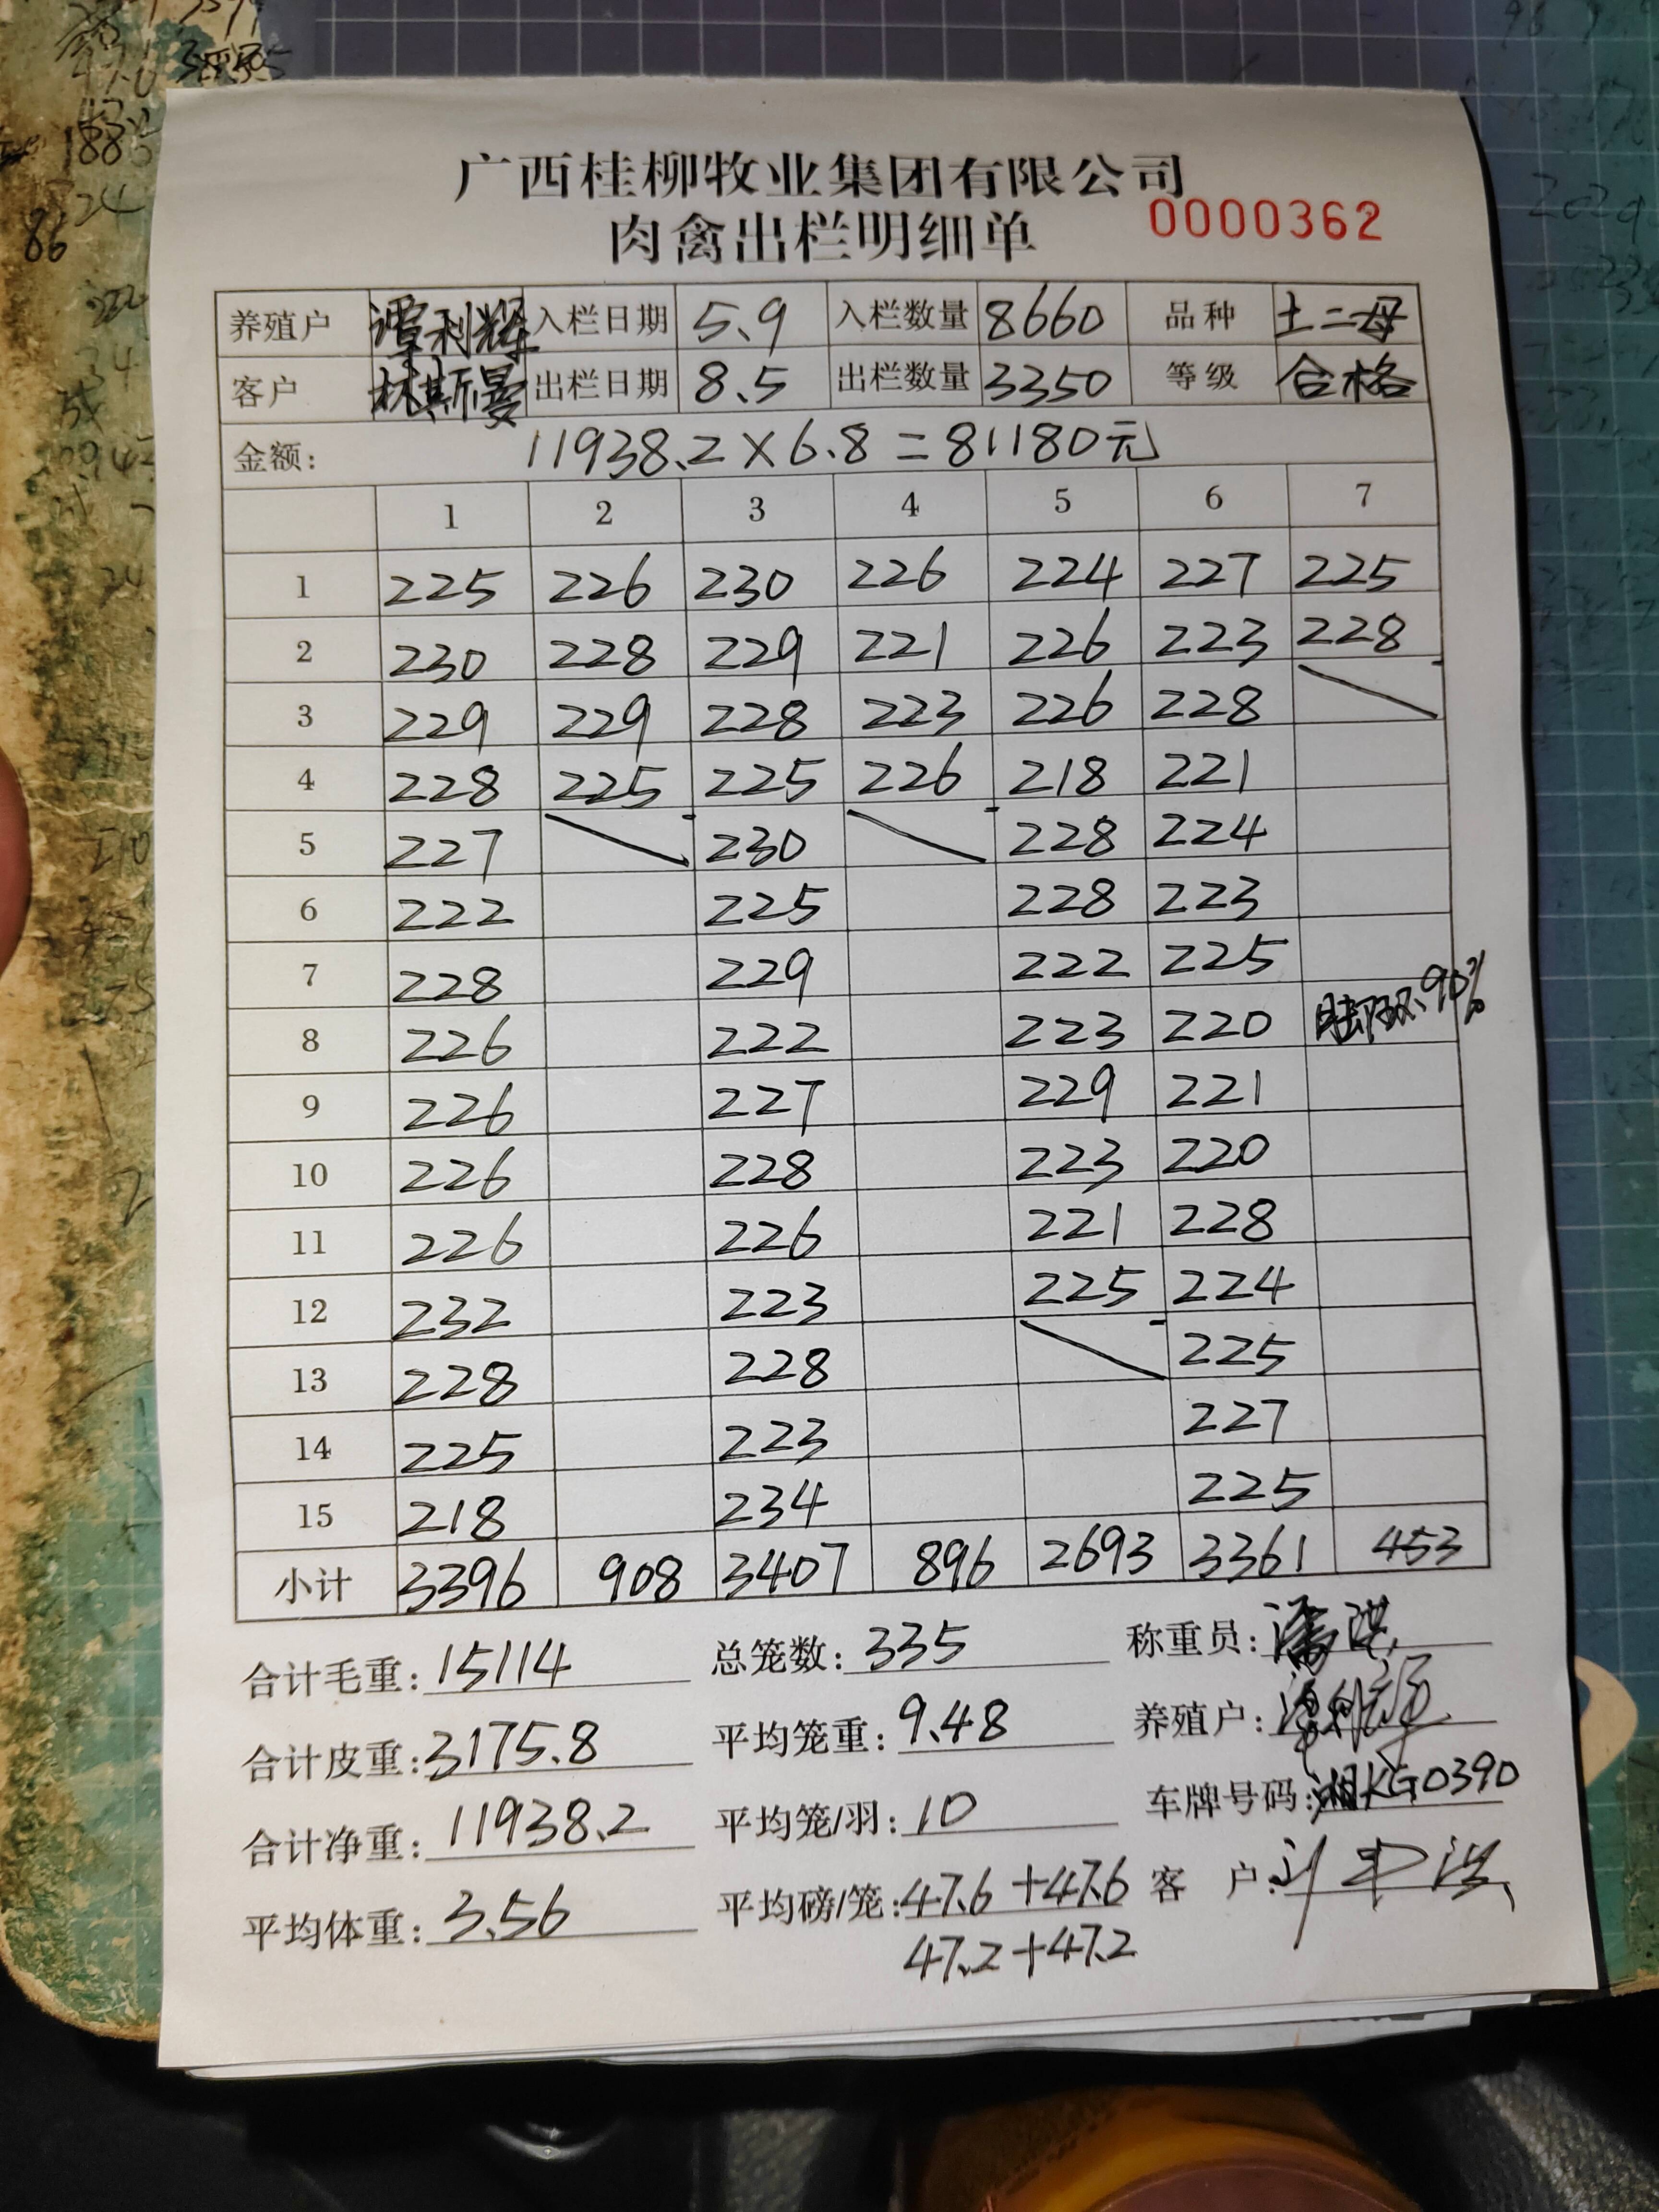 广西桂柳牧业集团有限公司
肉禽出栏明细单 0000362
养殖户 谭利辉 入栏日期 5.9 入栏数量 8660 品种 土二母
客户 林斯曼 出栏日期 8.5 出栏数量 3350 等级 合格
金额: 11938.2×6.8=81180元
1 2 3 4 5 6 7
1 225 226 230 226 224 227 225
2 230 228 229 221 226 223 228
3 229 229 228 223 226 228
4 228 225 225 226 218 221
5 227 230 228 224
6 222 225 228 223
7 228 229 222 225
8 226 222 223 220 90%
9 226 227 229 221
10 226 228 223 220
11 226 226 221 228
12 232 223 225 224
13 228 228 225
14 225 223 227
15 218 234 225
小计 3396 908 3407 896 2693 3361 453
合计毛重: 15114 总笼数: 335 称重员:
合计皮重: 3175.8 平均笼重: 9.48 养殖户:
合计净重: 11938.2 平均笼/羽: 10 车牌号码: 湘KG0390
平均体重: 3.56 平均磅/笼: 47.6+47.6 客 户:
47.2+47.2